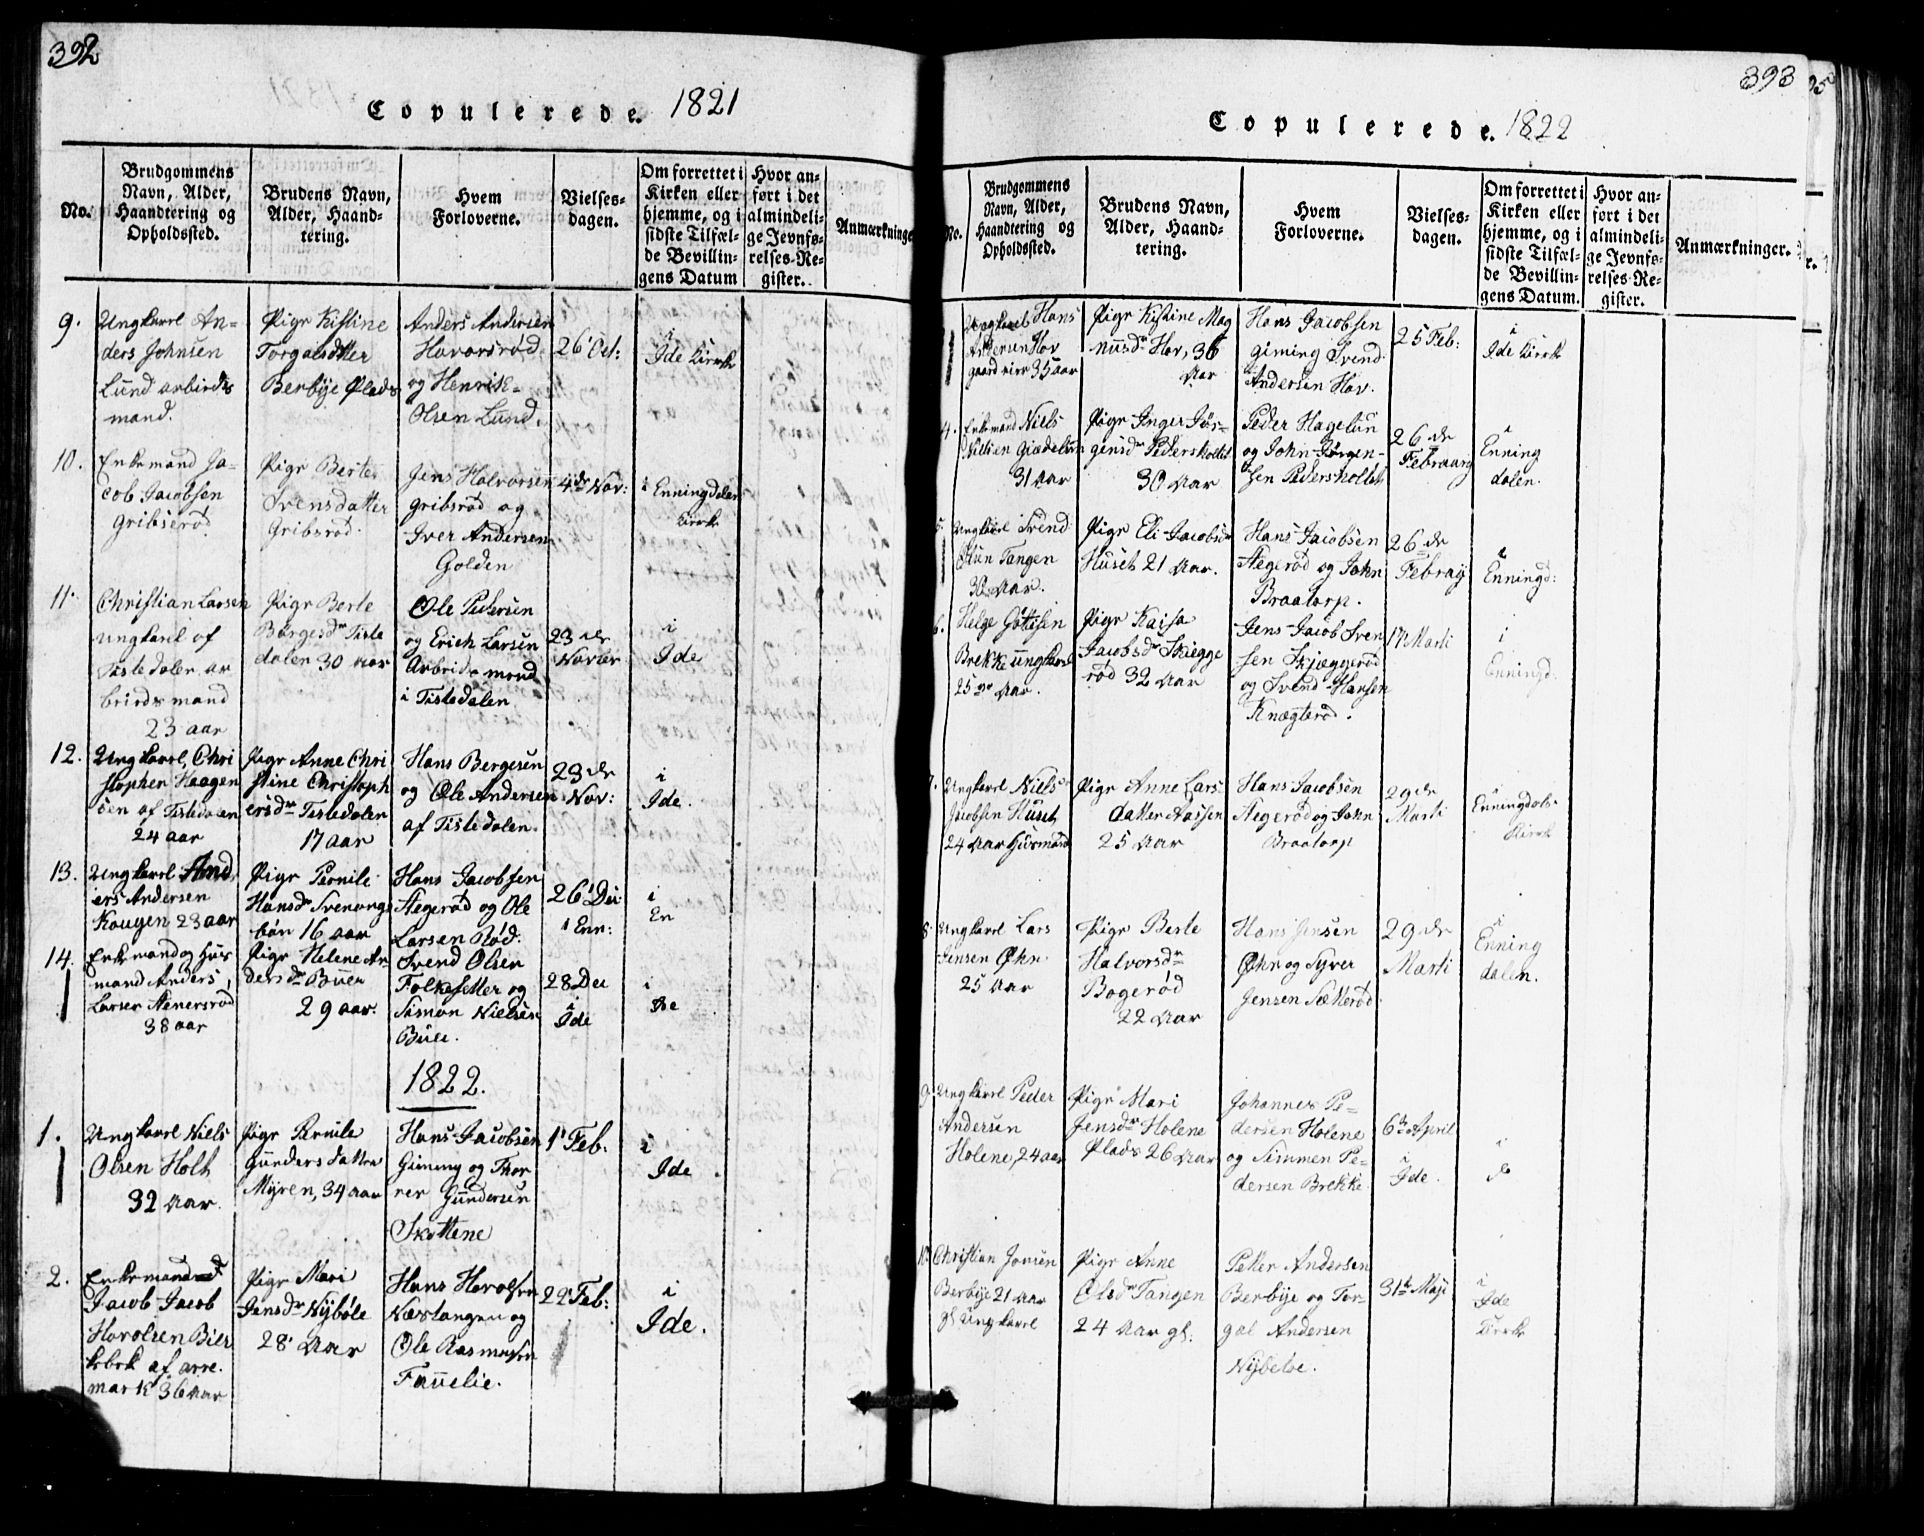 392
Copulerede. 1821
No.
Brudgommens
Navn, Alder,
Haandtering og
Opholdssted.
Brudens Navn,
Alder, Haand-
tering.
Hvem
Forloverne.
Vielses-
dagen.
Om forrettet i
Kirken eller
hjemme, og i
sidste Tilfæl-
de Bevillin-
gens Datum
Hvor an-
ført i det
almindeli-
ge Jevnfø-
relses-Re-
gister.
Anmærkninge
9.
Ungkarl An-
ders Johnsen
Lund arbirds
mand.
Pige Kistine
Torgalsdtter
Berbye Plads
Anders Andersen
Havorsrød
og Henrik
Olsen Lund.
26 Oct:
i
Ide Kirke
10.
Enkemand Ja-
cob Jacobsen
gribserød.
Pige Berte
Svensdatter
Gribsrød.
Jens Halvorsen
gribsrød og
Iver Andersen
Golden
4de Nov:
i Enningdalen
Kirke
11.
Christian Larsen
ungkarl af
Tistedalen ar
birds mand
23 aar
Pige Berte
Børgesdr Tiste
dalen 30 aar
Ole Pedersen
og Erich Larsen
Arbeids mand
i Tistedalen
23de
Novber
i
Ide
12.
Ungkarl Chri
stopher Haagen
sen af Tistedalen
24 aar
Pige Anne Chri
stine Christoph
ersdr Tistedalen
17 aar
Hans Bergesen
og Ole Andersen
af Tistedalen.
23de
Nov:
i
Ide.
13.
Ungkarl And
ers Andersen
Kougen 23 aar
Pige Pernile
Hansdr Svenungs
bøn 16 aar
Hans Jacobsen
Stegerød og Ole
Larsen Rød.
26 Dei
i Enn:
i
En
14.
Enkemand og Hus
mand Anders
Larsen Stenersrød
38 aar
Pige Helene An-
dersdr Buer
29 aar.
Svend Olsen
Folkesetter og
Simon Nielsen
Buer.
28 Dei
i
Ide
i
De
1822.
1.
Ungkarl Niels
Olsen Holt
32 Aar.
Pige Pernile
Gunders datter
Myren, 34 aar
Hans Jacobsen
Gimmy og Thor
ner Gundersen
Skottene
1 Feb.
i
Ide
2.
Enkemand
Jacob Jacob
Havolsen Bier
kebek af arre-
mark 36 Aar
Pige Mari
Jensdr Nybøle
28 Aar
Hans Havolsen
Næstangen og
Ole Rasmusen
Fauelie.
22 Feb:
i
Ide.
393
Copulerede. 1822
No.
Brudgommens
Navn, Alder,
Haandtering og
Opholdssted.
Brudens Navn,
Alder, Haand-
tering.
Hvem
Forloverne.
Vielses-
dagen.
Om forrettet i
Kirken eller
hjemme, og i
sidste Tilfæl-
de Bevillin-
gens Datum.
Hvor an-
ført i det
almindeli-
ge Jevnfø-
relses-Re-
gister.
Anmærkninger.
Ungkarl Hans
Andersen Hov
gaard eier 35 aar
Pige Kistine Mag
nusdr Hov, 36
Aar
Hans Jacobsen
giming Svend
Andersen Hov.
25 Feb:
i
Ide Kirke
4.
Enkemand Niels
Nilsen
31 Aar
Pige Inger Jør-
gensd Pedersholtet
30 Aar
Peder Hagelun
og John Jørgen-
sen Pedersholtet
26de
Februarij
i
Enning
dalen.
5.
Ungkarl Svend
Olsen Tangen
Aar.
Pige Eli Jacobsdr
Huset 21 Aar.
Hans Jacobsen
Stegerød og John
Braatorp.
26de
Febray
i
Enningd:
6.
Helge Gottesen
Brekke ungkarl
25 Aar.
Pige Kaisa
Jacobsdr Skiegge
rød 32 Aar
Jens Jacob Sven
sen Skjæggerød
og Svend Hansen
Knægterød.
17 Marti
i
Enningd.
7.
Ungkarl Niels
Jacobsen Huset
24 Aar Husmand
Pige Anne Lars
datter Aassen
25 Aar
Hans Jacobsen
Stegerød og John
Braatorp
29de
Marti
Enningdals
Kirke
8.
Ungkarl Lars
Jensen Øhn
25 Aar
Pige Berte
Halvorsdr
Bogerød
22 Aar
Hans Jensen
Øhn og Syver
Jensen Sætterød
29de
Marti
i
Enning
dalen.
9.
Ungkarl Peder
Andersen
Holene, 24 aar
Pige Mari
Jensdr Holene
Plads 26 Aar
Johannes Pe-
dersen Holene
og Simmen Pe-
dersen Brekke
6te April
i
Ide.
i
do
10.
Christian Jonsen
Berbye 21 Aar
gl Ungkarl
Pige Anne
Olsdr Tangen
24 Aar gl.
Petter Andersen
Berbye og Tor-
gal Andersen
Nybeloe.
31te Maji
i
Ide
Kirke